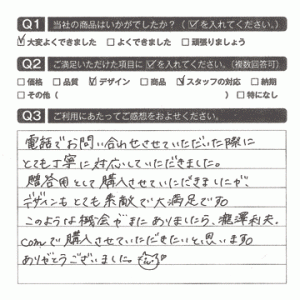 Q1 当社の商品はいかがでしたか？（☑を入れてください。）
☑大変よくできました □よくできました □頑張りましょう
Q2 ご満足いただけた項目に☑を入れてください。（複数回答可）
□価格 □品質 ☑デザイン □商品 ☑スタッフの対応 □納期
□その他（ ） □特になし
Q3 ご利用にあたってご感想をおよせください。
電話でお問い合わせさせていただいた際に
とても丁寧に対応していただきました。
贈答用として購入させていただきましたが、
デザインもとても素敵で大満足です
このような機会がまたありましたら、瀧澤利夫.
comで購入させていただきたいと思います
ありがとうございました。